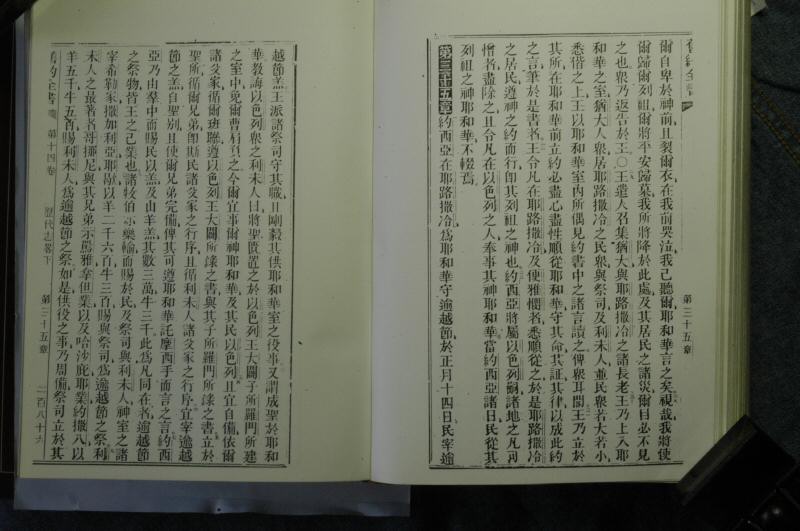 舊約全書
第三十五章
爾自卑於神前、且裂爾衣、在我前哭泣、我已聽爾、耶和華言之矣、視哉、我將使
爾歸爾列祖、爾將平安歸墓、我所將降於此處、及其居民之諸災、爾目必不見
之也、衆乃返告於王。〇王遣人召集猶大與耶路撒冷之諸長老、王乃上入耶
和華之室、猶大人衆、居耶路撒冷之民衆、與祭司及利未人、並民衆若大若小、
悉偕之上、王以耶和華室內所偶見約書中之諸言、讀之俾衆耳聞、王乃立於
其所、在耶和華前立約、必盡心盡性、順從耶和華、守其命、其証、其律、以成此約
之言筆於是書者、王令凡在耶路撒冷及便雅憫者、悉順從之、於是耶路撒冷
之居民、遵神之約而行、即其列祖之神也、約西亞將屬以色列嗣諸地之凡可
憎者、盡除之、且令凡在以色列之人、奉事其神耶和華、當約西亞諸日、民從其
列祖之神耶和華不輟焉。
第三十五章 約西亞在耶路撒冷爲耶和華守逾越節、於正月十四日、民宰逾
越節羔、王派諸祭司守其職、且剛毅其供耶和華室之役事、又謂成聖於耶和
華、教誨以色列衆之利未人曰、將聖匱置之於以色列王大闢子所羅門所建
之室中、免爾曹肩負之、今爾宜事爾神耶和華、及其民以色列、且宜自備、依爾
諸父家、循爾班聯、遵以色列王大闢所錄之書、與其子所羅門所錄之書、立於
聖所、循爾兄弟即斯民諸父家之行序、且循利未人諸父家之行序、宜宰逾越
節之羔、自聖別、且使爾兄弟完備、俾其可遵耶和華託摩西手而言之言、約西
亞乃由羣中而賜民以羔、及由山羊羔、其數三萬、牛三千、此爲凡同在者、逾越節
之祭物、皆王之己業也、諸牧伯亦樂輸而賜於民、及祭司與利未人、神室之諸
宰希勒家、撒加利亞、耶歇、以羊二千六百、牛三百、賜與祭司、爲逾越節之祭、利
未人之最著者、哥挪尼與其兄弟示罵雅、拿但業、以及哈沙庇耶業、約撒八、以
羊五千、牛五百、賜利未人、爲逾越節之祭、如是供役之事乃周備、祭司立於其
舊約全書 第十四卷 歷代志畧下 第三十五章 二百八十六